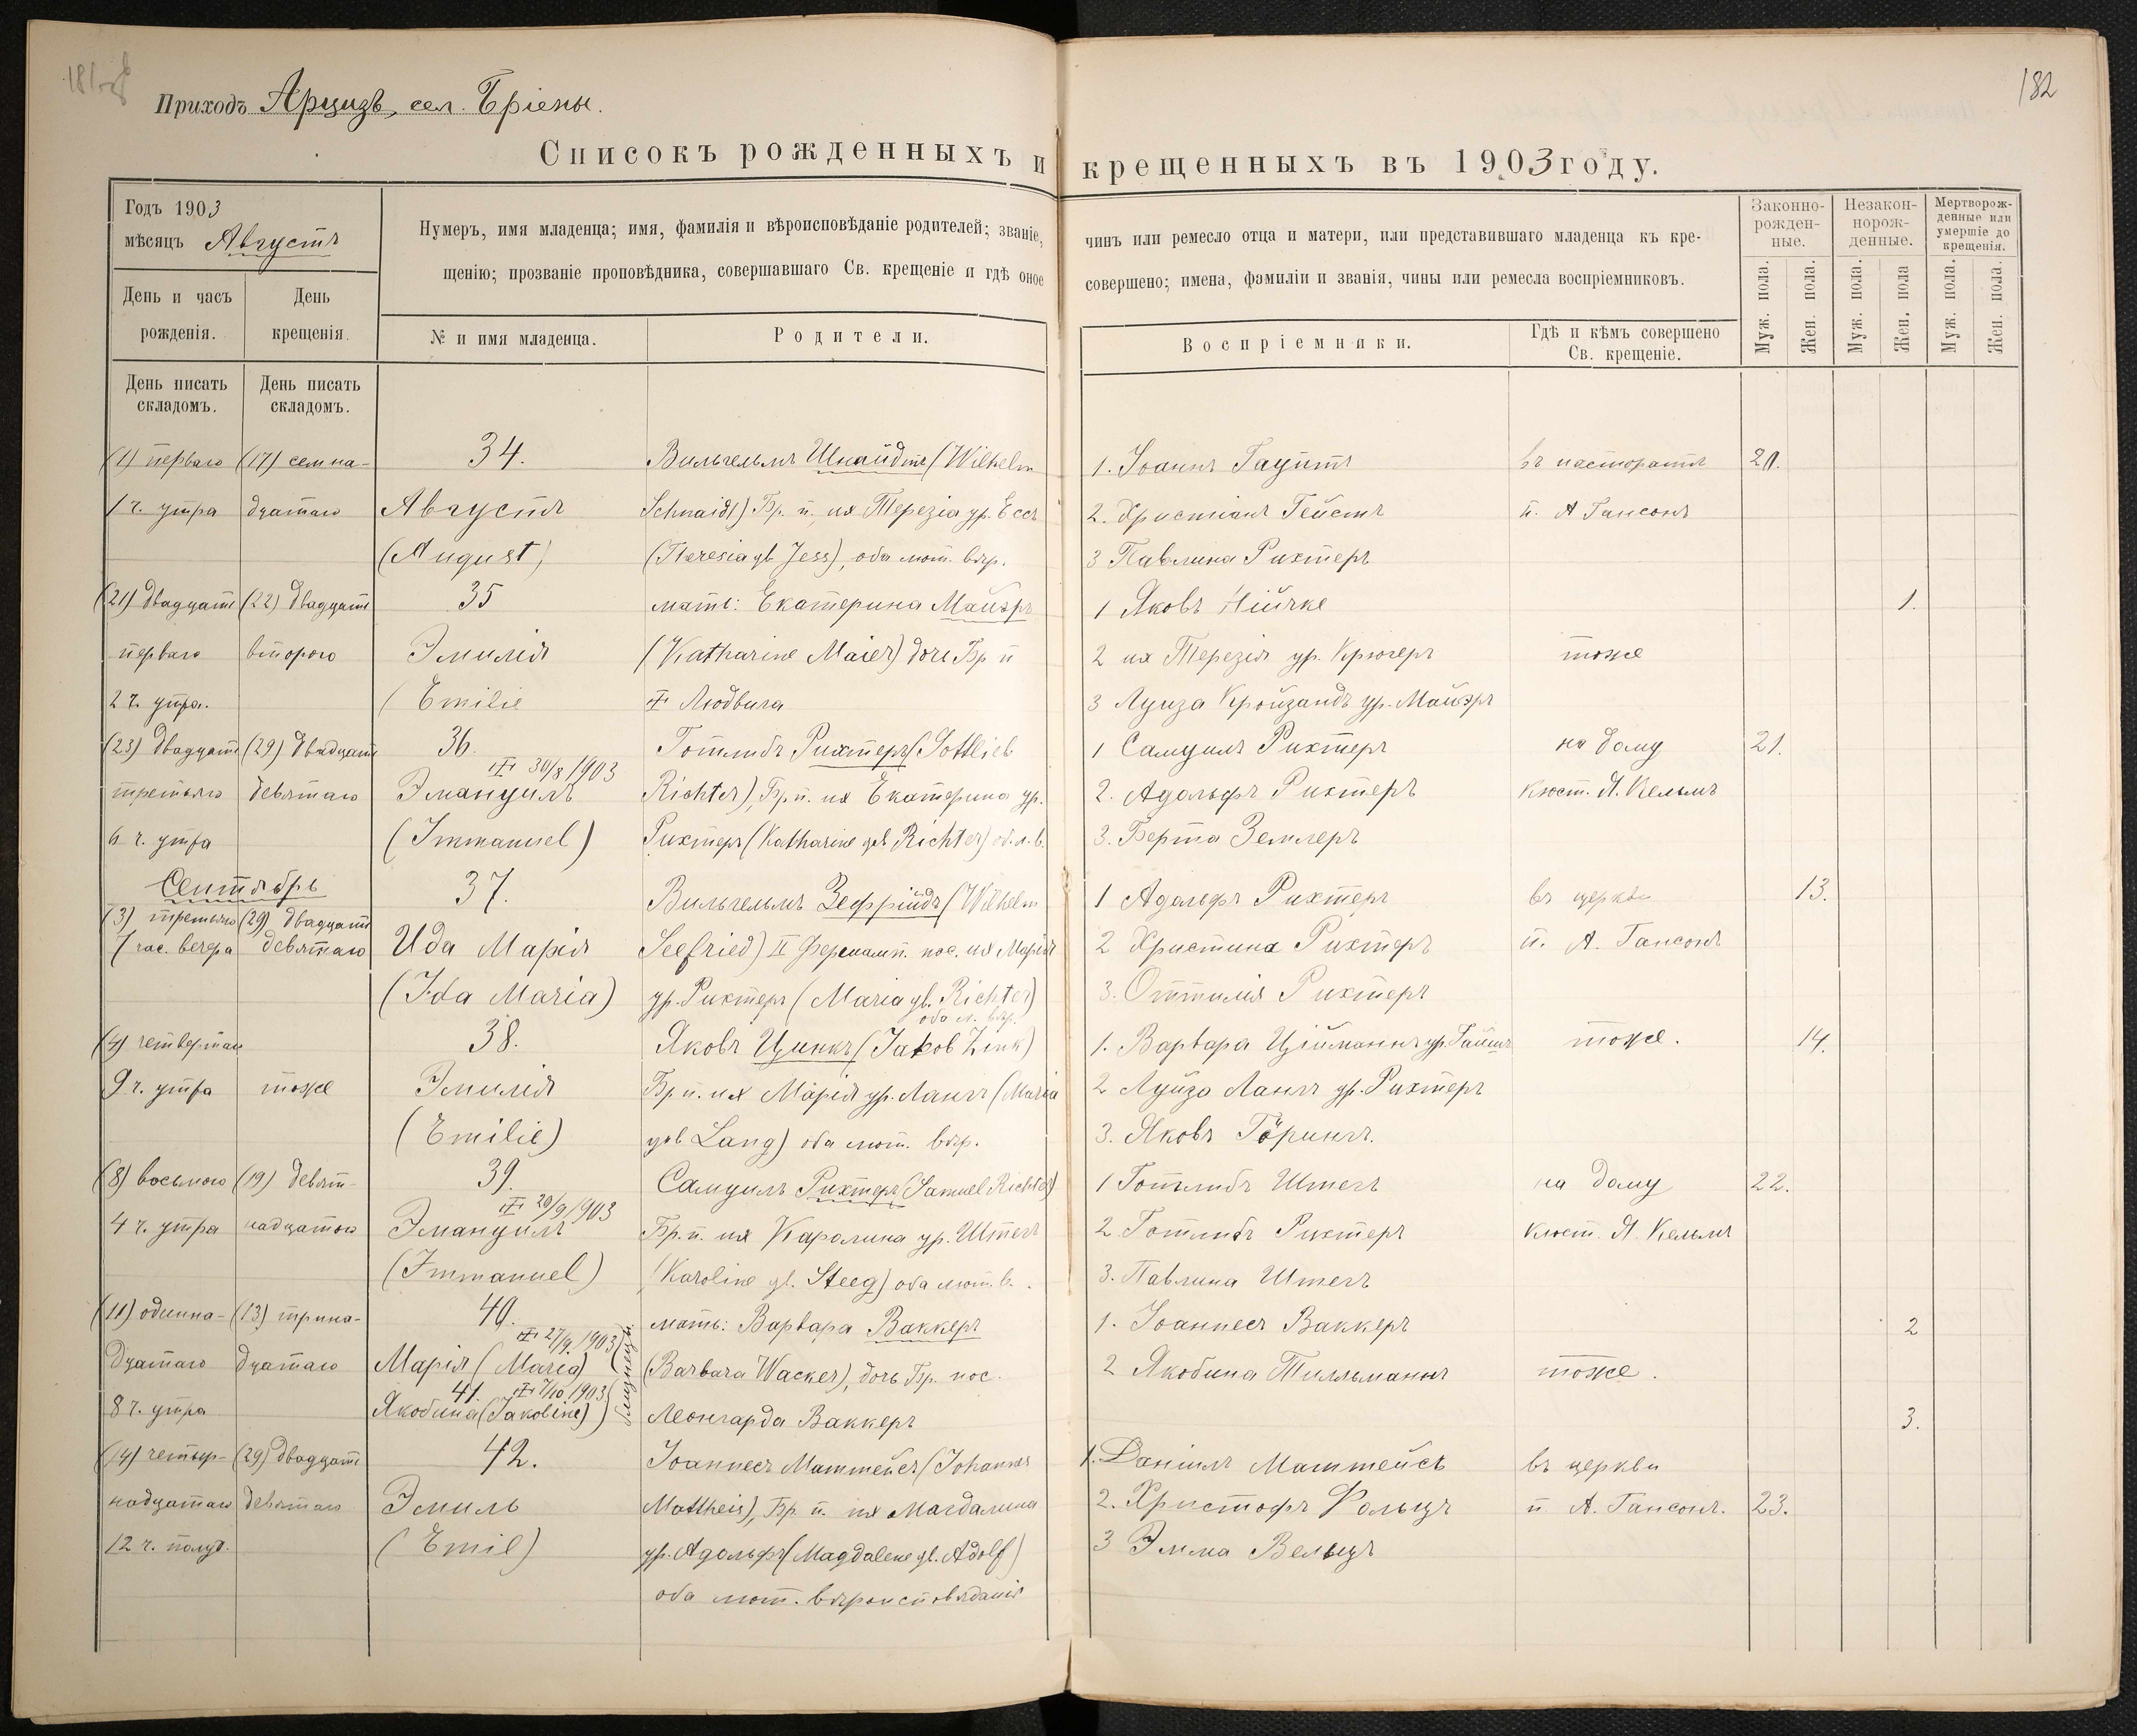 182
Приходъ Арцизъ, сел. Бріены.
Списокъ рожденныхъ и крещенныхъ въ 1903 году.
Годъ 1903
мѣсяцъ Августъ
День и часъ рожденія.
День крещенія.
Нумеръ, имя младенца; имя, фамилія и вѣроисповѣданіе родителей; званіе, чинъ или ремесло отца и матери, или представившаго младенца къ крещенію; прозваніе проповѣдника, совершавшаго Св. крещеніе и гдѣ оное совершено; имена, фамиліи и званія, чины или ремесла воспріемниковъ.
№ и имя младенца.
Родители.
Воспріемники.
Гдѣ и кѣмъ совершено Св. крещеніе.
Законно-рожден-ные.
Незакон-норож-денные.
Мертворож-денные или умершіе до крещенія.
Муж. пола.
Жен. пола.
Муж. пола.
Жен. пола
Муж. пола.
Жен. пола.
День писать складомъ.
День писать складомъ.
(1) перваго (17) семна- 34. Вильгельмъ Шнайдтъ (Wilhelm 1. Іоаннъ Гауптъ въ пасторатѣ 20.
1 ч. утра дцатаго Августъ Schnaidt) Бр. п. их Терезія ур. Ессъ 2. Христіанъ Гейстъ п. А Гансонъ
(August) (Theresia gb Jess), оба лют. вѣр. 3 Павлина Рихтеръ
(21) двадцать (22) двадцать 35 мать: Екатерина Майэръ 1 Яковъ Нійчке 1.
перваго второго Эмилія (Katharine Maier) дочь Бр п 2 их Терезія ур. Крюгеръ тоже
2 ч. утра. (Emilie Людвига 3 Луиза Кройзандъ ур. Майэръ
(23) двадцать (29) двадцать 36. Готлибъ Рихтеръ (Gottlieb 1 Самуилъ Рихтеръ на дому 21.
30/8 1903
третьяго девятаго Эмануилъ Richter), Бр п. их Екатерина ур. 2. Адольфъ Рихтеръ кюст. Я. Кельмъ
6 ч. утра (Immanuel) Рихтеръ (Katharine geb Richter) об. л. в. 3. Берта Землеръ
Сентябрь 37. Вильгельмъ Зефрійдъ (Wilhelm 1 Адольфъ Рихтеръ въ церкви 13.
(3) третьяго (29) двадцать
7 час. вечера девятаго Ида Марія Seefried) II Фершамп. пос. их Марія 2 Христина Рихтеръ п. А. Гансонъ
(Ida Maria) ур. Рихтеръ (Maria gb. Richter) 3. Оттилія Рихтеръ
оба л. вѣр.
(4) четвертаго 38. Яковъ Цинкъ (Jakob Zink) 1. Варвара Ційманнъ ур. тоже. 14.
9 ч. утра тоже Эмилія Бр п. их Марія ур. Лангъ (Maria 2 Луиза Лангъ ур. Рихтеръ
(Emilie) geb Lang) оба лют. вѣр. 3. Яковъ Гёрингъ.
(8) восьмого (19) девят- 39. Самуилъ Рихтеръ (Samuel Richter) 1 Готлибъ Штегъ на дому 22.
20/9 1903
4 ч. утра надцатаго Эмануилъ Бр. п. их Каролина ур. Штегъ 2. Готлибъ Рихтеръ кюст. Я. Кельмъ
(Immanuel) (Karoline gb. Steeg) оба лют. в. 3. Павлина Штегъ
(11) одинна- (13) трина- 40. мать: Варвара Ваккеръ 1. Іоаннесъ Ваккеръ 2
27/9. 1903
дцатаго дцатаго Марія (Maria) близнецы. (Barbara Wacker), дочь Бр. пос. 2 Якобина Тилльманнъ тоже.
41. 7/10 1903
8 ч. утра Якобина (Jakobine) Леонгарда Ваккеръ 3.
(14) четыр- (29) двадцать 42. Іоаннесъ Маттейсъ (Johannes 1. Даніилъ Маттейсъ въ церкви
надцатаго девятаго Эмиль Mattheis), Бр. п. их Магдалина 2. Христофъ Фольцъ п А. Гансонъ. 23.
12 ч. полуд. (Emil) ур. Адольфъ (Magdalene gb. Adolf) 3 Эмма Вельцъ
оба лют. вѣроисповѣданія